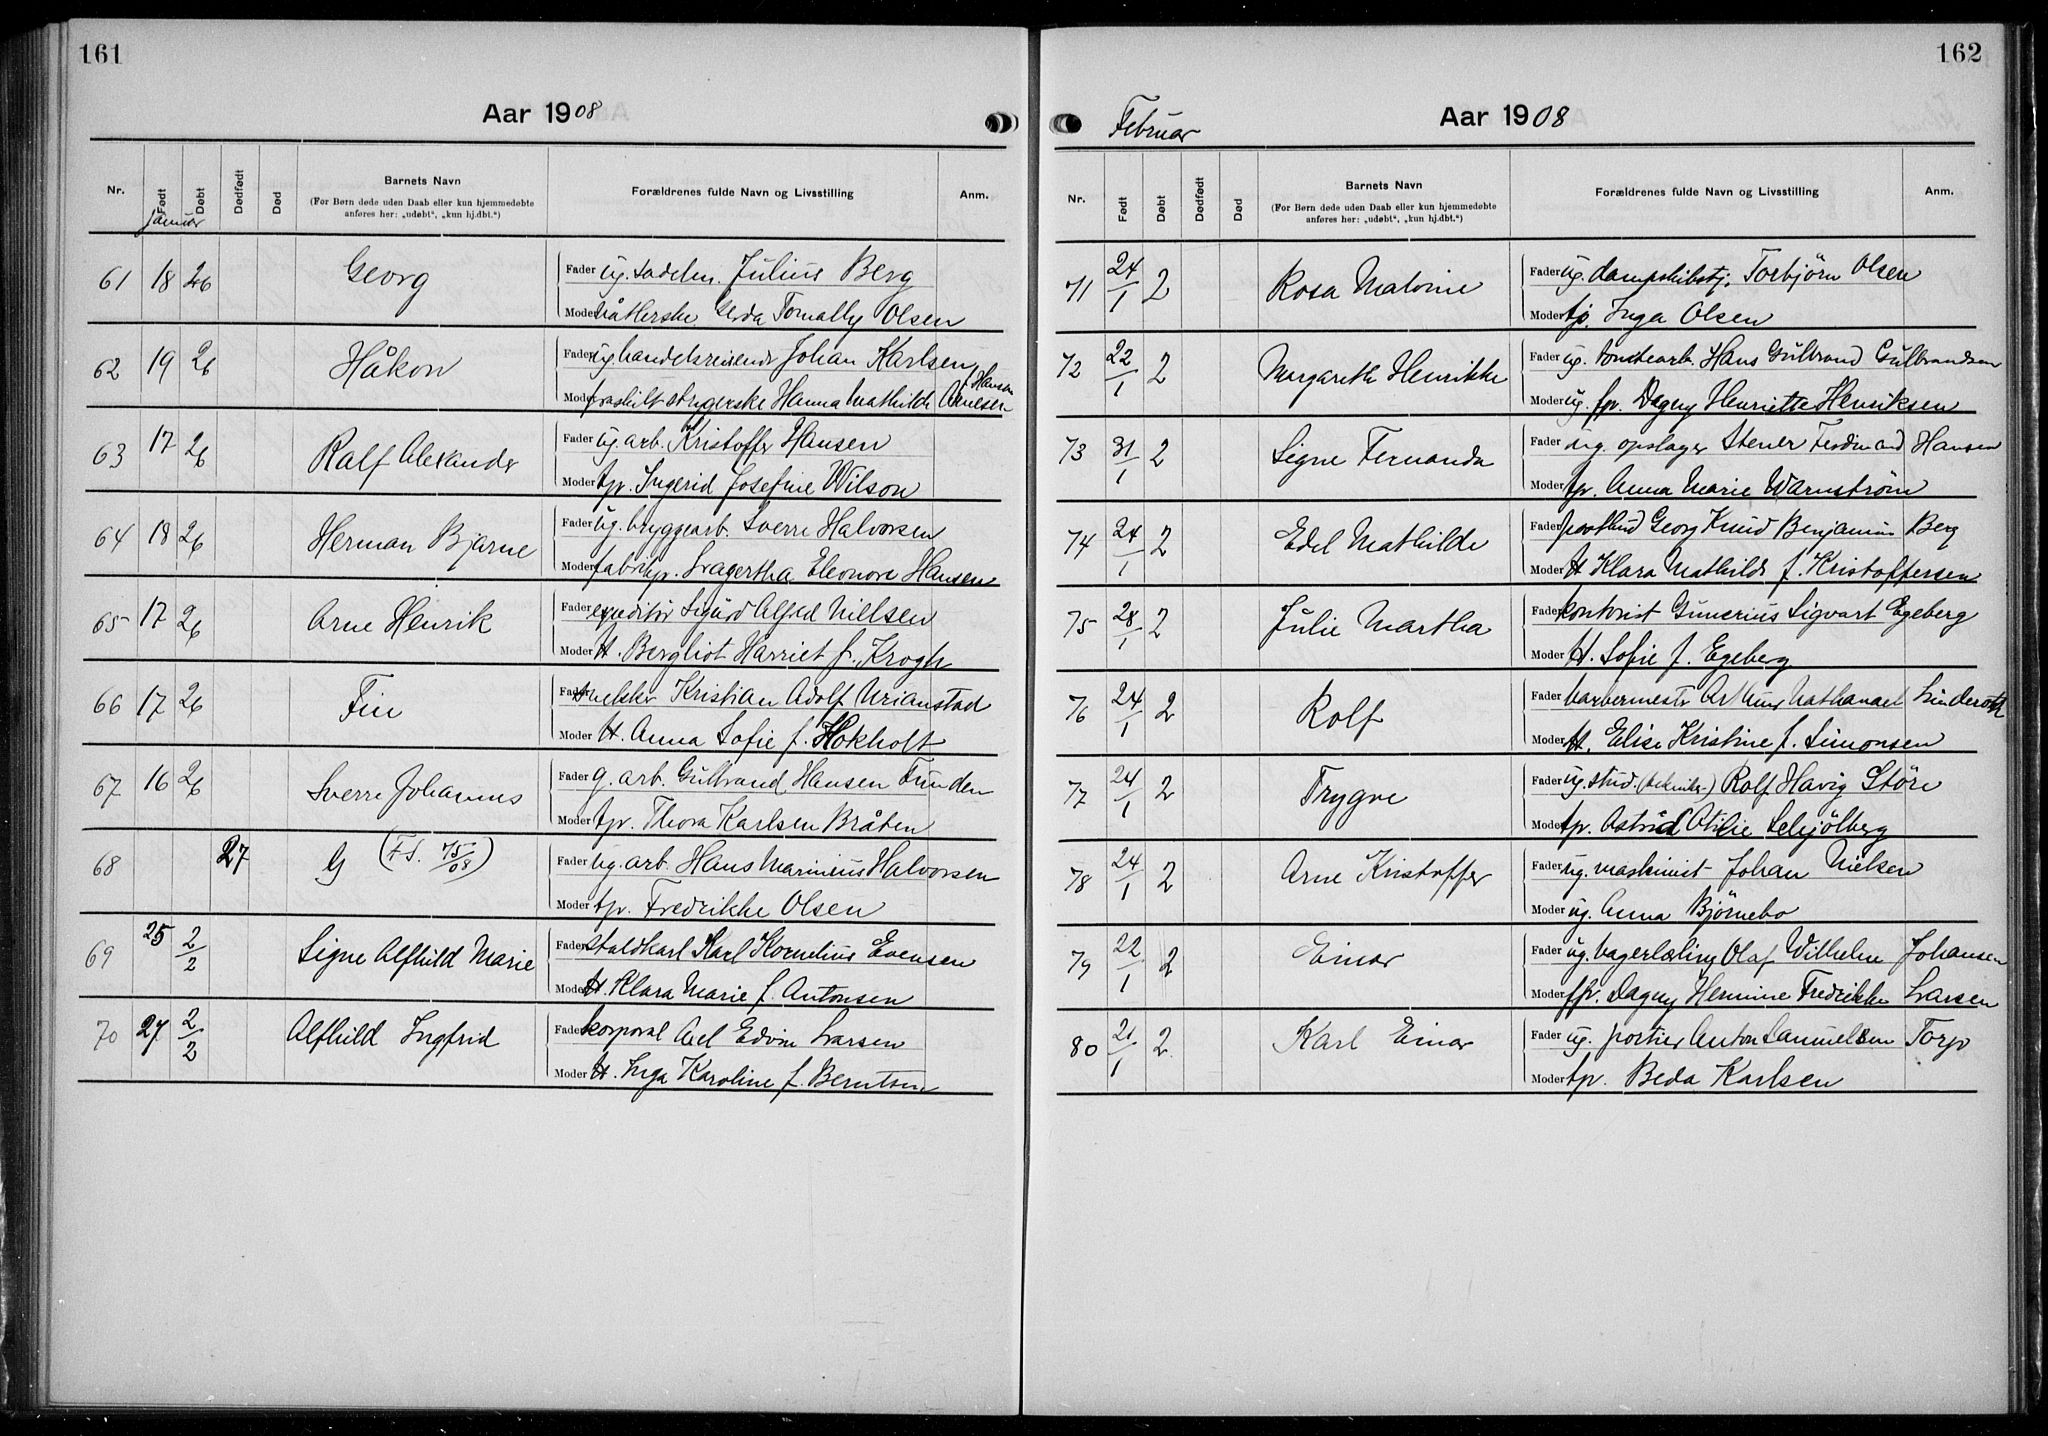 161
Aar 1908
Nr. Født Døbt Dødfødt Død Barnets Navn Forældrenes fulde Navn og Livsstilling Anm.
(For Børn døde uden Daab eller kun hjemmedøbte
anføres her: „udøbt“, „kun hj.dbt.“)
Januar
61 18 26 Georg Fader ug. sadelm. Julius Berg
Moder Gerda Tomally Olsen
62 19 26 Håkon Fader ug. handelsreisende Johan Karlsen
Moder fraskilt strygerske Hanna Mathilde Arnesen f. Hansen
63 17 26 Ralf Alexander Fader ug. arb. Kristoffer Hansen
Moder tp. Ingerid Josefine Wilson
64 18 26 Herman Bjarne Fader ug. bryggearb. Sverre Halvorsen
Moder fabrikp. Svagertha Eleonore Hansen
65 17 26 Arne Henrik Fader expeditør Sigurd Alfred Nielsen
Moder H. Bergliot Harriet f. Krogh
66 17 26 Fin Fader snekker Kristian Adolf Urianstad
Moder H. Anna Sofie f. Hokholt
67 16 26 Sverre Johannes Fader g. arb. Gulbrand Hansen Funden
Moder tp. Thora Karlsen Bråten
68 27 G (F.S. 75/08) Fader ug. arb. Hans Marinius Halvorsen
Moder tp. Fredrikke Olsen
69 25 2/2 Signe Alfhild Marie Fader staldkarl Karl Kornelius Evensen
Moder H. Klara Marie f. Antonsen
70 27 2/2 Alfhild Ingfrid Fader korporal Axel Edvin Larsen
Moder H. Inga Karoline f. Berntsen
162
Februar Aar 1908
Nr. Født Døbt Dødfødt Død Barnets Navn Forældrenes fulde Navn og Livsstilling Anm.
(For Børn døde uden Daab eller kun hjemmedøbte
anføres her: „udøbt“, „kun hj.dbt.“)
71 24/1 2 Rosa Malvine Fader ug. dampskibstj. Torbjörn Olsen
Moder tp. Inga Olsen
72 22/1 2 Margareth Henrikke Fader ug. Hans Gulbrand Gulbrandsen
Moder ug. fp. Dagny Henriette Henriksen
73 31/1 2 Signe Fernanda Fader ug. opslager Stener Ferdinand Hansen
Moder tp. Anna Marie Warnström
74 24/1 2 Edel Mathilde Fader postbud Georg Knud Benjamin Berg
Moder H. Klara Mathilde f. Kristoffersen
75 28/1 2 Julie Martha Fader kontorist Gunerius Sigvart Egeberg
Moder H. Sofie f. Egeberg
76 24/1 2 Rolf Fader barbermester Arthur Nathanael Linderoth
Moder H. Elise Kristine f. Simonsen
77 24/1 2 Trygve Fader ug. stud. (tekniker) Rolf Havig Störe
Moder tp. Astrid Otilie Schjölberg
78 24/1 2 Arne Kristoffer Fader ug. maskinist Johan Nielsen
Moder ug. Anna Björnebo
79 22/1 2 Einar Fader ug. bagerlærling Olaf Wilhelm Johansen
Moder fp. Dagny Hermine Fredrikke Larsen
80 21/1 2 Karl Einar Fader ug. portier Anton Samuelsen Torp
Moder tp. Beda Karlsen